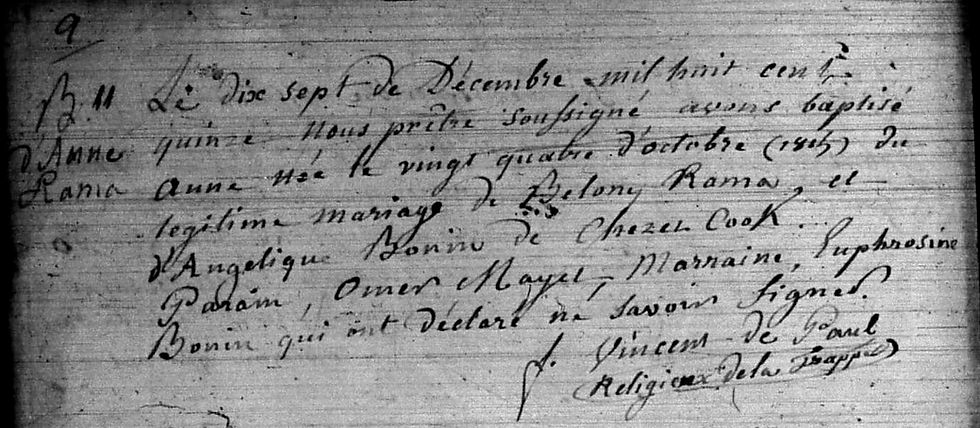 9
B. 11
d'Anne
Rama
Le dix sept de Décembre mil huit cent
quinze nous prêtre soussigné avons baptisé
Anne née le vingt quatre d'octobre (1815) du
legitime mariage de Belony Rama, et
d'Angelique Bonin de Chezet Cook.
Parain, Omer Mayet, Marraine, Euphrosine
Bonin qui ont déclaré ne savoir signer.
f. Vincent de Paul
Religieux de la Trappe